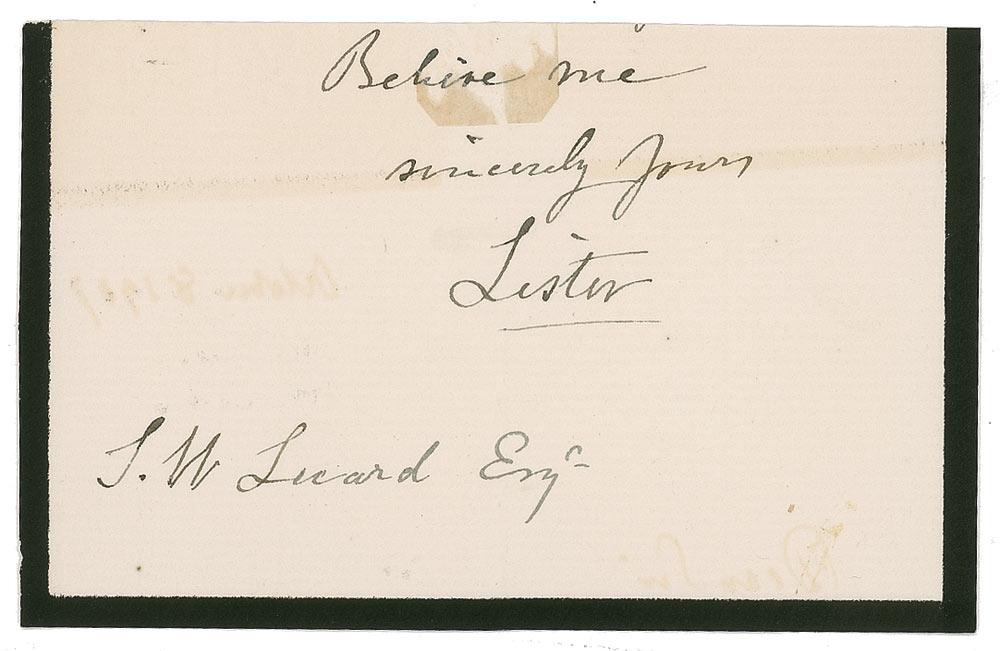 Believe me
sincerely yours
Lister
S. W Lucard Esqr